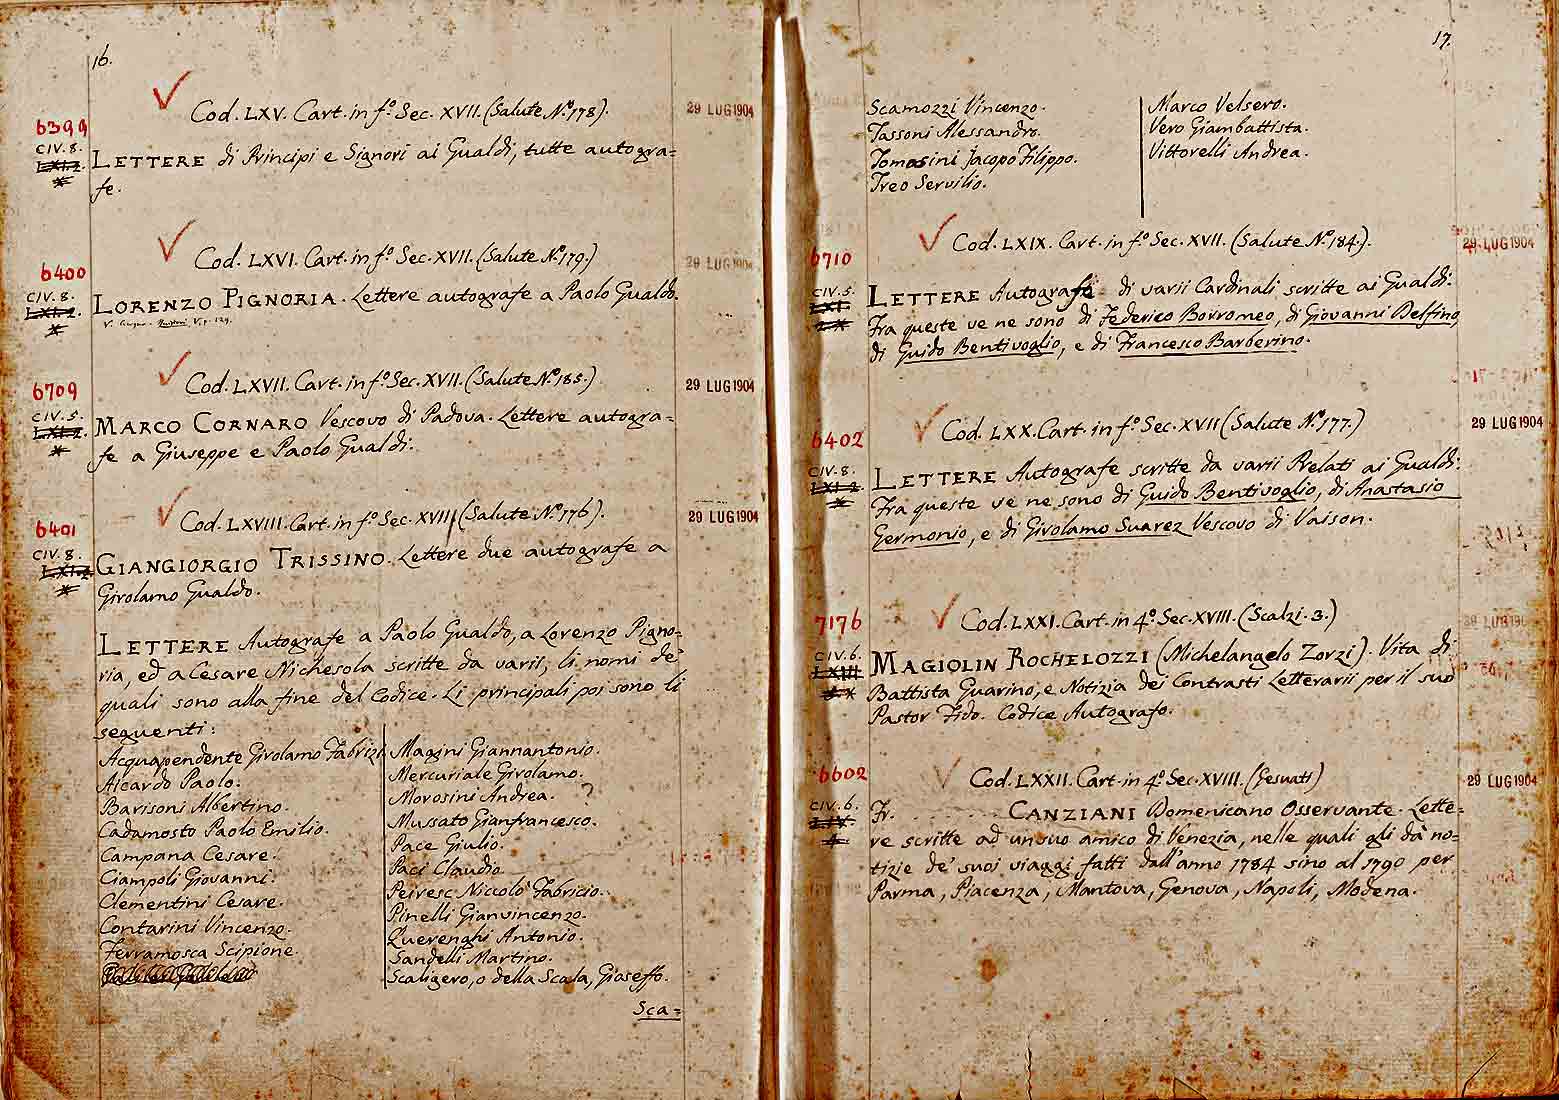 16.
Cod. LXV. Cart. in f.º Sec. XVII. (Salute Nº. 178).
29 LUG 1904
6399
CIV. 8.
LXI. 2.
LETTERE di Principi e Signori ai Gualdi, tutte autogra=
fe.
Cod. LXVI. Cart. in f.º Sec. XVII. (Salute Nº. 179.)
29 LUG 1904
6400
CIV. 8.
LXI. 2.
LORENZO PIGNORIA. Lettere autografe a Paolo Gualdo.
Cod. LXVII. Cart. in f.º Sec. XVII. (Salute Nº. 185.)
29 LUG 1904
6709
CIV. 5.
LXI. 2.
MARCO CORNARO Vescovo di Padova. Lettere autogra=
fe a Giuseppe e Paolo Gualdi.
Cod. LXVIII. Cart. in f.º Sec. XVII. (Salute Nº. 176).
29 LUG 1904
6401
CIV. 8.
LXI. 2
GIANGIORGIO TRISSINO. Lettere due autografe a
Girolamo Gualdo.
LETTERE Autografe a Paolo Gualdo, a Lorenzo Pigno=
ria, ed a Cesare Nichesola scritte da varii; li nomi de'
quali sono alla fine del Codice. Li principali poi sono li
seguenti:
Acquapendente Girolamo Fabrizi
Aicardo Paolo.
Barisoni Albertino.
Cadamosto Paolo Emilio.
Campana Cesare.
Ciampoli Giovanni.
Clementini Cesare.
Contarini Vincenzo.
Ferramosca Scipione.
Magini Giannantonio.
Mercuriale Girolamo.
Morosini Andrea. ?
Mussato Gianfrancesco.
Pace Giulio.
Paci Claudio
Peiresc Niccolò Fabricio.
Pinelli Gianvincenzo.
Querenghi Antonio.
Sandelli Martino.
Scaligero, o della Scala, Gioseffo.
Sca=
17.
Scamozzi Vincenzo.
Tassoni Alessandro.
Tomasini Jacopo Filippo.
Treo Servilio.
Marco Velsero.
Vero Giambattista.
Vittorelli Andrea.
Cod. LXIX. Cart. in f.º Sec. XVII. (Salute Nº. 184.).
29 LUG 1904
6710
CIV. 5.
LXI.
LETTERE Autografe di varii Cardinali scritte ai Gualdi.
Fra queste ve ne sono di Federico Borromeo, di Giovanni Delfino,
di Guido Bentivoglio, e di Francesco Barberino.
Cod. LXX. Cart. in f.º Sec. XVII (Salute Nº. 177.)
29 LUG 1904
6402
CIV. 8.
LXI. 2
LETTERE Autografe scritte da varii Prelati ai Gualdi.
Fra queste ve ne sono di Guido Bentivoglio, di Anastasio
Germonio, e di Girolamo Suarez Vescovo di Vaison.
Cod. LXXI. Cart. in 4º. Sec. XVIII. (Scalzi. 3.)
29 LUG 190
7176
CIV. 6.
LXIII
MAGIOLIN ROCHELOZZI (Michelangelo Zorzi). Vita di
Battista Guarino, e Notizia dei Contrasti Letterarii per il suo
Pastor Fido. Codice Autografo.
Cod. LXXII. Cart. in 4º. Sec. XVIII. (Gesuati)
29 LUG 1904
6602
CIV. 6.
Fr. . . . . . . . CANZIANI Domenicano Osservante. Lette=
re scritte ad un suo amico di Venezia, nelle quali gli dà no=
tizie de' suoi viaggi fatti dall'anno 1784 sino al 1790 per
Parma, Piacenza, Mantova, Genova, Napoli, Modena.